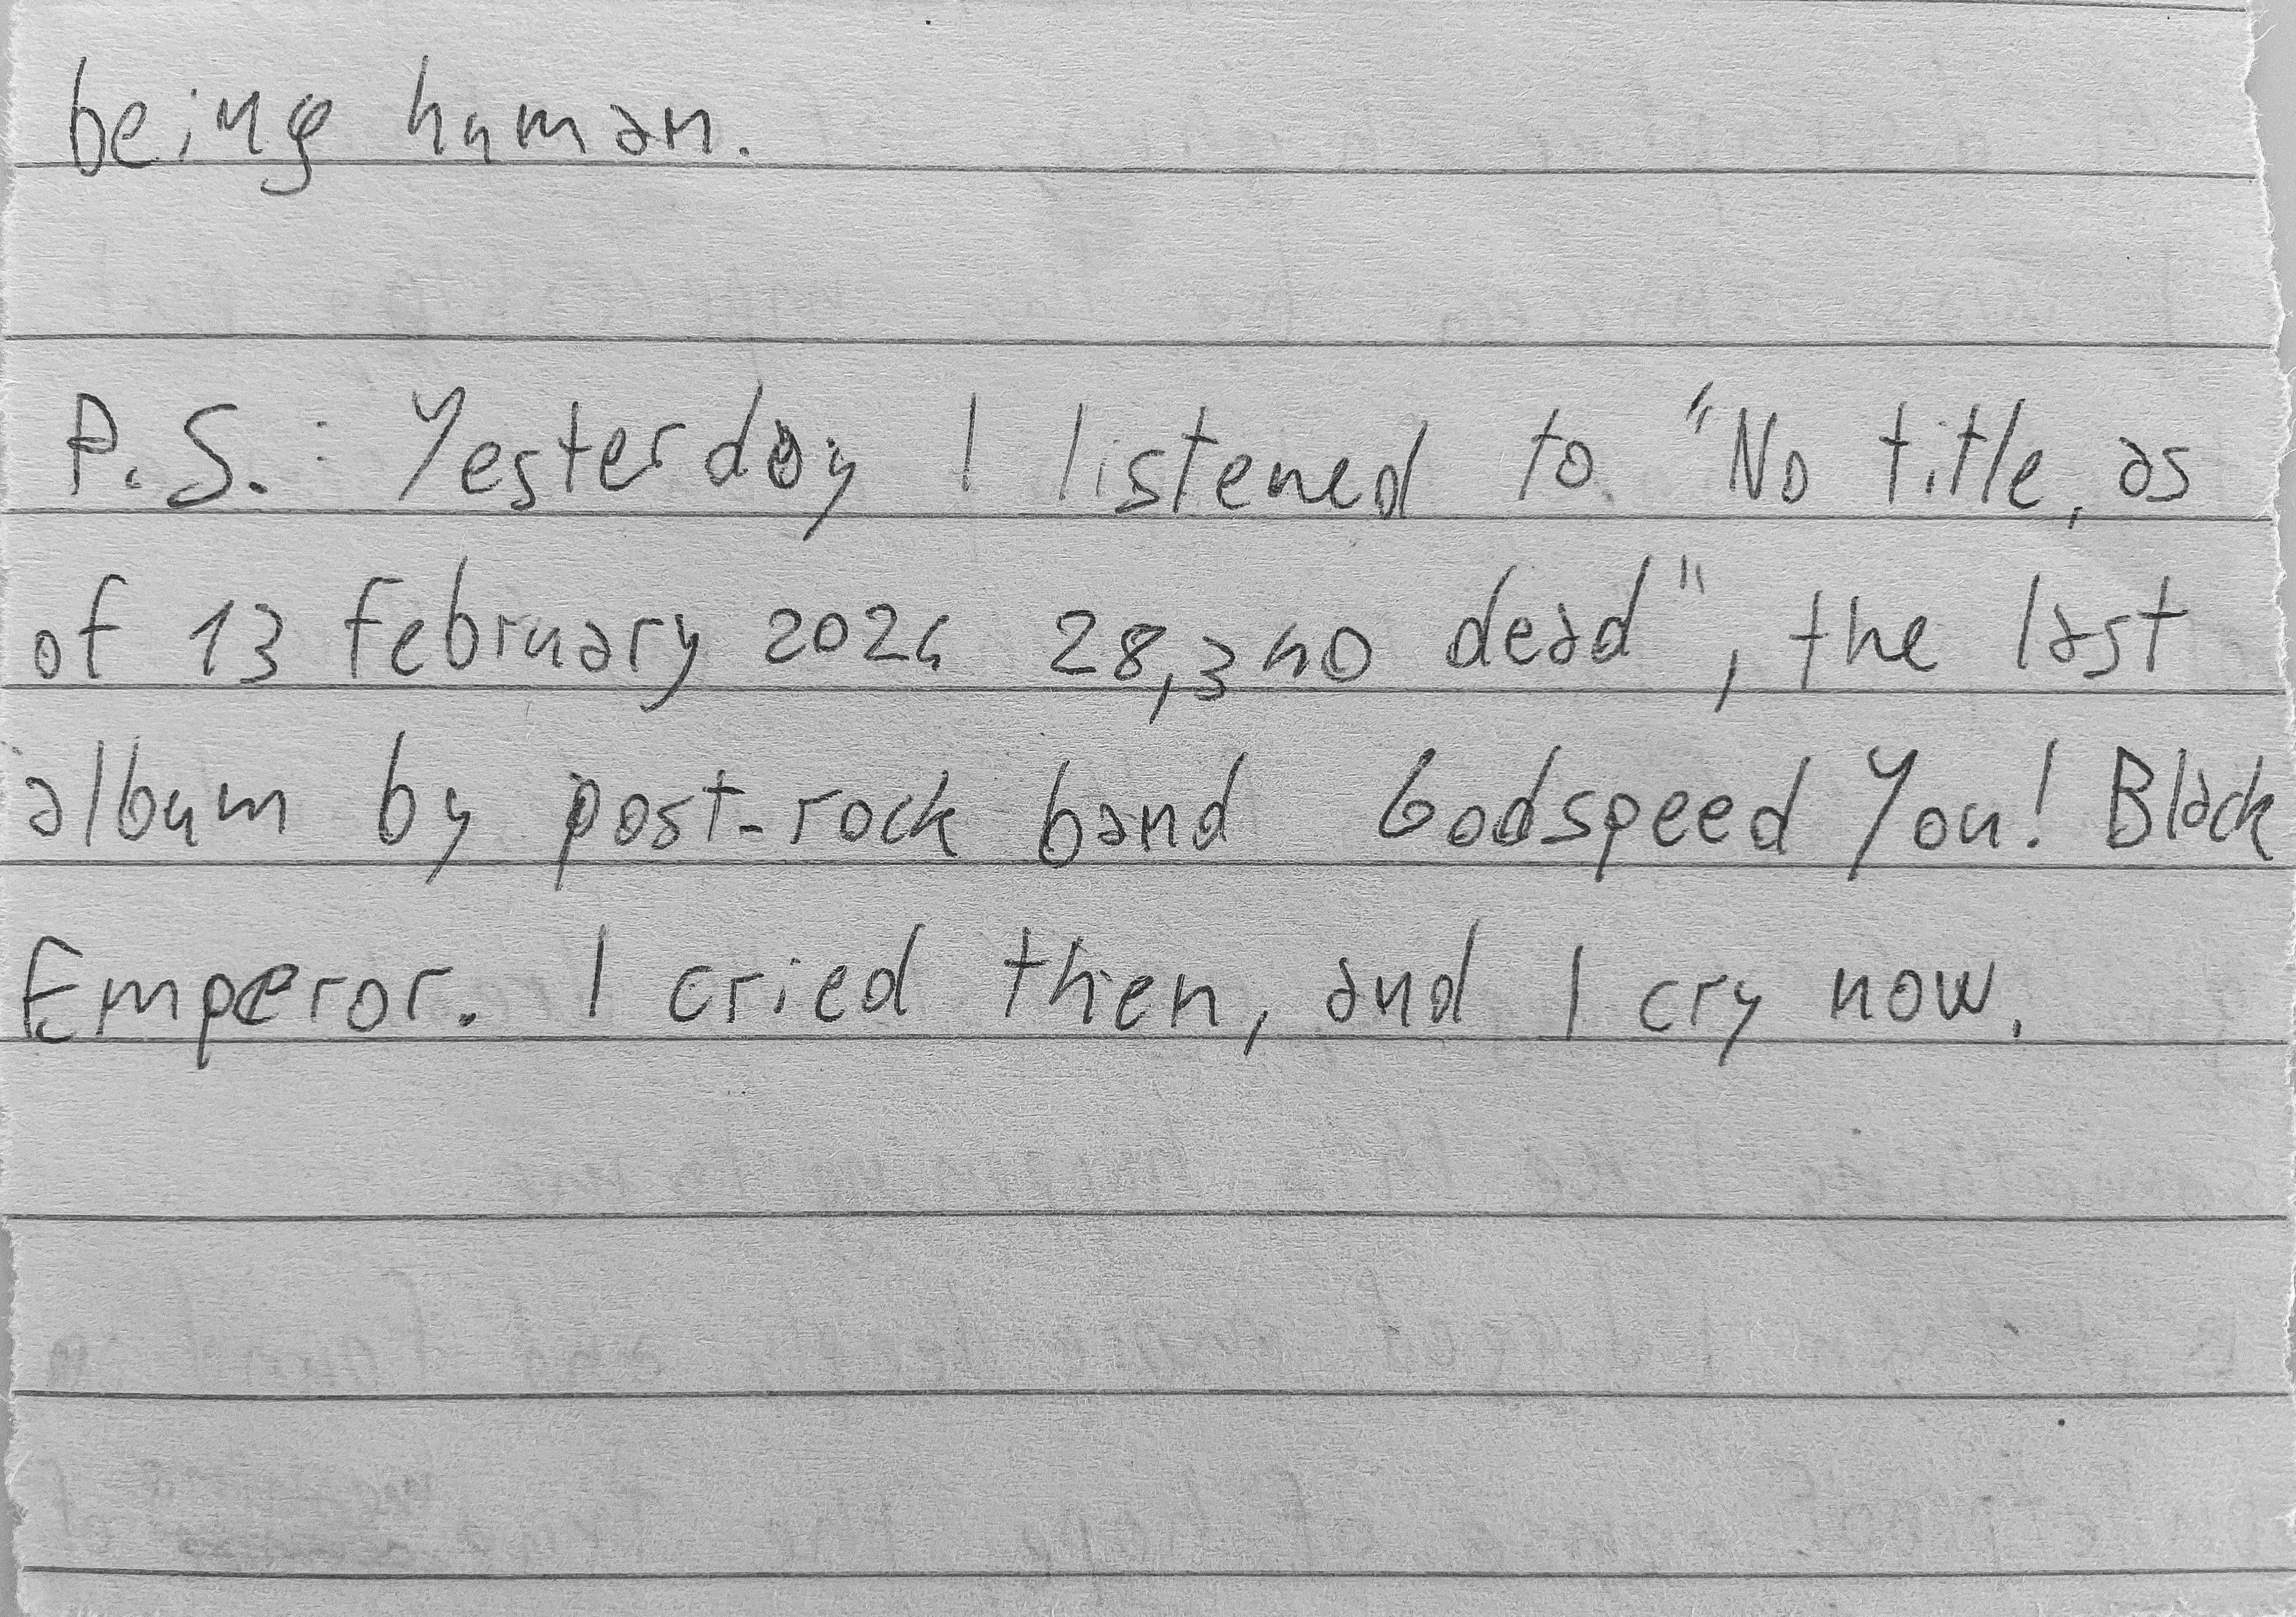 being human.
P.S.: Yesterday I listened to "No title, as
of 13 february 2024 28,340 dead", the last
album by post-rock band Godspeed You! Black
Emperor. I cried then, and I cry now.